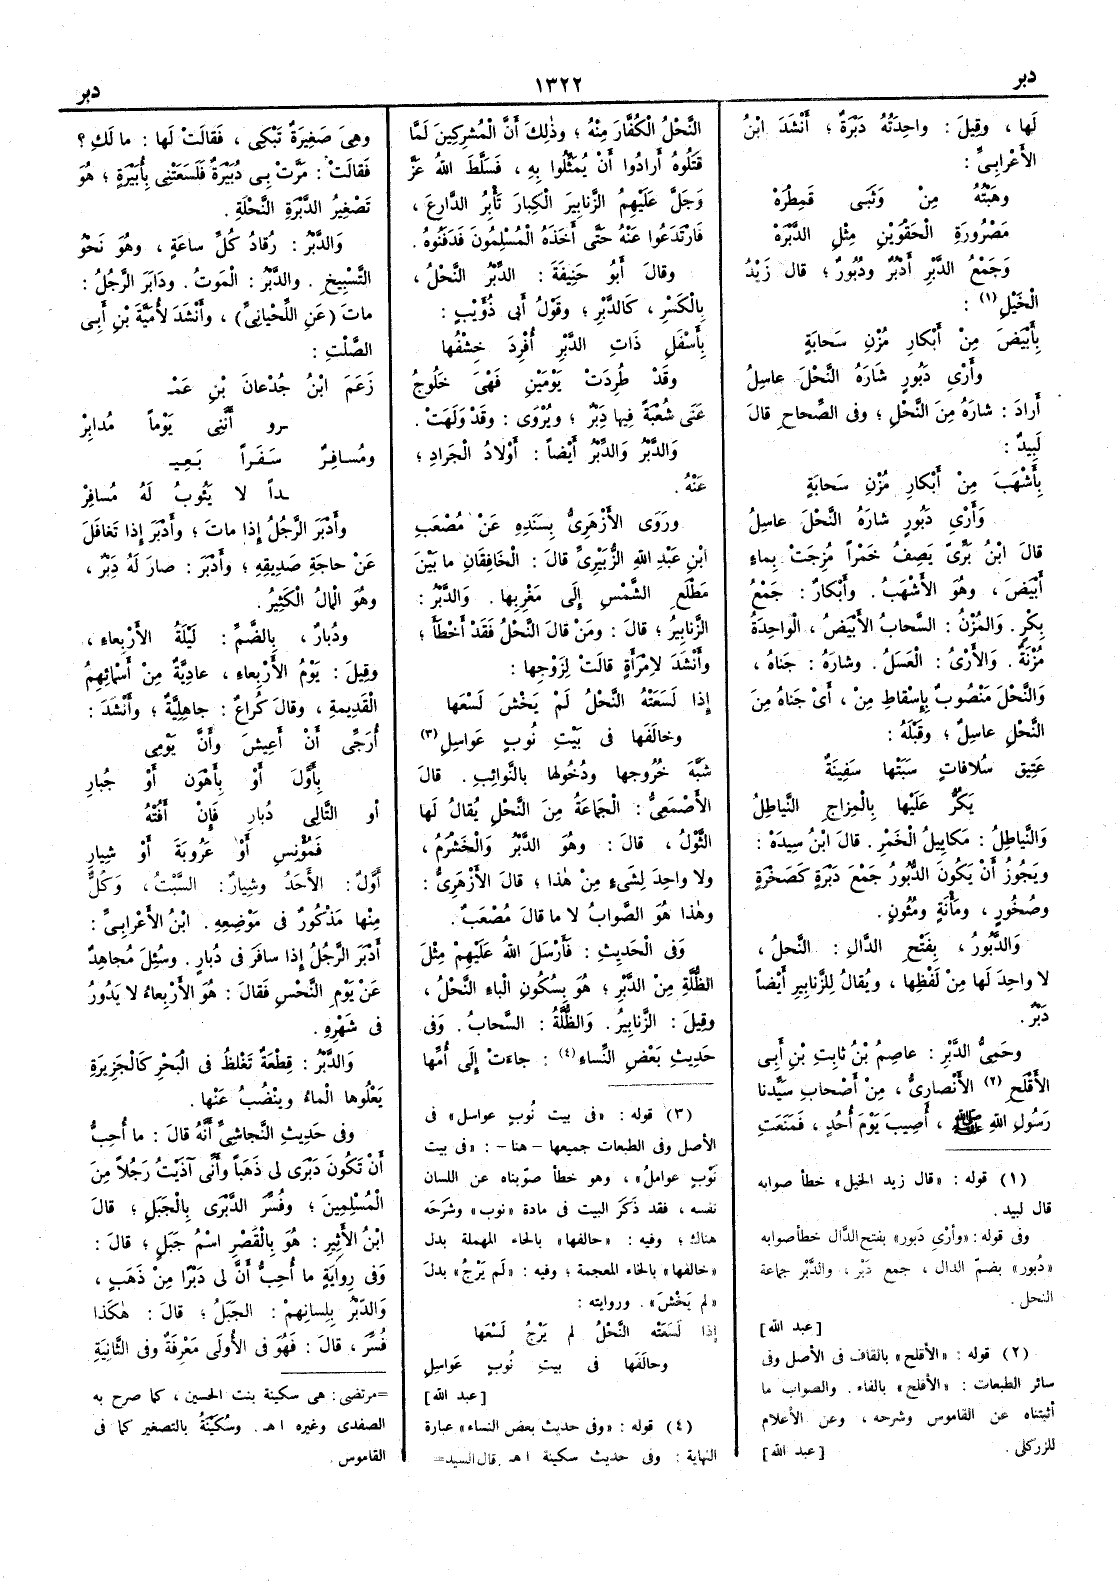 دبر
١٣٢٢
دبر
لَها ، وقِيلَ : واحِدَتُهُ دَبَرَةٌ ؛ أَنْشَدَ ابْنُ
الأَعْرابِىِّ :
وهَبْتُهُ مِنْ وَثَبَى قَمِطْرَهْ
مَصْرُورَةِ الْحَقْوَيْنِ مِثْلِ الدَّبْرَهْ
وَجَمْعُ الدَّبْرِ أَدْبُرٌ ودُبُورٌ ؛ قال زَيْدُ
الْخَيْلِ (١) :
بِأَبْيَضَ مِنْ أَبْكارِ مُزْنِ سَحابَةٍ
وأَرْىِ دَبُورٍ شارَهُ النَّحْلَ عاسِلُ
أَرادَ : شارَهُ مِنَ النَّحْلِ ؛ وفى الصِّحاحِ قالَ
لَبِيدٌ :
بِأَشْهَبَ مِنْ أَبْكارِ مُزْنِ سَحابَةٍ
وَأَرْىِ دَبُورٍ شارَهُ النَّحْلَ عاسِلُ
قالَ ابْنُ بَرِّىّ يَصِفُ خَمْراً مُزِجَتْ بِماءٍ
أَبْيَضَ ، وهُوَ الأَشْهَبُ . وأَبْكارٌ : جَمْعُ
بِكْرٍ . وَالمُزْنُ : السَّحابُ الأَبْيَضُ ، الْواحِدَةُ
مُزْنَةٌ . وَالأَرْىُ : الْعَسَلُ . وشارَهُ : جَناهُ ،
وَالنَّحْلَ مَنْصُوبٌ بِإِسْقاطِ مِنْ ، أَىْ جَناهُ مِنَ
النَّحْلِ عاسِلٌ ؛ وقَبْلَهُ :
عَتِيق سُلافاتٍ سَبَتْها سَفِينَةٌ
يَكُرُّ عَلَيْها بِالْمِزاجِ النَّياطِلُ
وَالنَّياطِلُ : مَكايِيلُ الْخَمْرِ . قالَ ابْنُ سِيدَهْ :
ويَجُوزُ أَنْ يَكُونَ الدُّبُورُ جَمْعَ دَبْرَةٍ كَصَخْرَةٍ
وصُخُورٍ ، ومَأْنَةٍ ومُئُونٍ .
وَالدَّبُورُ ، بِفَتْحِ الدَّالِ : النَّحْلُ ،
لا واحِدَ لَها مِنْ لَفْظِها ، ويُقالُ لِلزَّنابِيرِ أَيْضاً
دَبْرٌ .
وحَمِىُّ الدَّبْرِ : عاصِمُ بْنُ ثابِتِ بْنِ أَبِى
الأَقْلَحِ (٢) الأَنْصارِىُّ ، مِنْ أَصْحابِ سَيِّدِنا
رَسُولِ اللهِ ﷺ ، أُصِيبَ يَوْمَ أُحُدٍ ، فَمَنَعَتِ
(١) قوله : «قال زيد الخيل» خطأ صوابه
قال لبيد .
وفى قوله : «وأرْىِ دَبور» بفتح الدَّال خطأ صوابه
«دُبور» بضمّ الدال ، جمع دَبْر ، والدَّبْر جماعة
النحل .
[عبد الله]
(٢) قوله : «الأقلح» بالقاف فى الأصل وفى
سائر الطبعات : «الأفلح» بالفاء . والصواب ما
أثبتناه عن القاموس وشرحه ، وعن الأعلام
للزركلى .
[عبد الله]
النَّحْلُ الْكُفَّارَ مِنْهُ ؛ وذٰلِكَ أَنَّ الْمُشْرِكِينَ لَمَّا
قَتَلُوهُ أَرادُوا أَنْ يُمَثِّلُوا بِهِ ، فَسَلَّطَ اللهُ عَزَّ
وَجَلَّ عَلَيْهِمُ الزَّنابِيرَ الْكِبارَ تَأْبِرُ الدَّارِعَ ،
فَارْتَدَعُوا عَنْهُ حَتَّى أَخَذَهُ الْمُسْلِمُونَ فَدَفَنُوهُ .
وقالَ أَبُو حَنِيفَةَ : الدِّبْرُ النَّحْلُ ،
بِالْكَسْرِ ، كَالدَّبْرِ ؛ وقَوْلُ أَبِى ذُؤَيْبٍ :
بِأَسْفَلِ ذَاتِ الدَّبْرِ أُفْرِدَ خِشْفُها
وقَدْ طُرِدَتْ يَوْمَيْنِ فَهْىَ خَلُوجُ
عَنَى شُعْبَةً فِيها دَبْرٌ ؛ ويُرْوَى : وقَدْ وَلَهَتْ .
وَالدَّبْرُ وَالدِّبْرُ أَيْضاً : أَوْلادُ الْجَرادِ ؛
عَنْهُ .
ورَوَى الأَزْهَرِىُّ بِسَنَدِهِ عَنْ مُصْعَبِ
ابْنِ عَبْدِ اللهِ الزُّبَيْرِىِّ قالَ : الْخَافِقانِ ما بَيْنَ
مَطْلَعِ الشَّمْسِ إِلَى مَغْرِبِها . وَالدَّبْرُ :
الزَّنابِيرُ ؛ قالَ : ومَنْ قالَ النَّحْلُ فَقَدْ أَخْطَأَ ؛
وأَنْشَدَ لاِمْرَأَةٍ قالَتْ لِزَوْجِها :
إِذا لَسَعَتْهُ النَّحْلُ لَمْ يَخْشَ لَسْعَها
وخالَفَها فِى بَيْتِ نُوبٍ عَواسِلِ (٣)
شَبَّهَ خُرُوجها ودُخُولها بالنَّوائِبِ . قالَ
الأَصْمَعِىُّ : الْجَماعَةُ مِنَ النَّحْلِ يُقالُ لَها
الثَّوْلُ ، قالَ : وهُوَ الدَّبْرُ وَالْخَشْرَمُ ،
ولا واحِدَ لِشَىْءٍ مِنْ هٰذا ؛ قالَ الأَزْهَرِىُّ :
وهٰذا هُوَ الصَّوابُ لا ما قالَ مُصْعَبٌ .
وَفِى الْحَدِيثِ : فَأَرْسَلَ اللهُ عَلَيْهِمْ مِثْلَ
الظُّلَّةِ مِنَ الدَّبْرِ ؛ هُوَ بِسُكُونِ الْباءِ النَّحْلُ ،
وقِيلَ : الزَّنابِيرُ . وَالظُّلَّةُ : السَّحابُ . وَفى
حَدِيثِ بَعْضِ النِّساءِ (٤) : جاءَتْ إِلَى أُمِّها
(٣) قوله : «فى بيت نُوبٍ عواسل» فى
الأصل وفى الطبعات جميعها – هنا – : «فى بيت
نَوْبٍ عوامل» ، وهو خطأ صوّبناه عن اللسان
نفسه ، فقد ذكَرَ البيت فى مادة «نوب» وشرَحَه
هناك ؛ وفيه : «حالفها» بالحاء المهملة بدل
«خالفها» بالخاء المعجمة ؛ وفيه : «لَم يَرْجُ» بدلَ
«لم يَخْشَ» . وروايته :
إذا لَسَعَتْه النَّحْلُ لم يَرْجُ لَسْعَها
وحالَفَها فى بيتِ نُوبٍ عَواسِلِ
[عبد الله]
(٤) قوله : «وفى حديث بعض النساء» عبارة
النهاية : وفى حديث سكينة ا هـ . قال السيد=
وهِىَ صَغِيرَةٌ تَبْكِى ، فَقالَتْ لَها : ما لَكِ ؟
فَقالَتْ : مَرَّتْ بِى دُبَيْرَةٌ فَلَسَعَتْنِى بِأُبَيْرَةٍ ؛ هُوَ
تَصْغِيرُ الدَّبْرَةِ النَّحْلَةِ .
وَالدَّبْرُ : رُقادُ كُلِّ ساعَةٍ ، وهُوَ نَحْوُ
التَّسْبِيخِ . وَالدَّبْرُ : الْمَوتُ . ودَابَرَ الرَّجُلُ :
ماتَ (عَنِ اللِّحْيانِىِّ) ، وأَنْشَدَ لأُمَيَّةَ بْنِ أَبِى
الصَّلْتِ :
زَعَمَ ابْنُ جُدْعانَ بْنِ عَمْـ
ـرو أَنَّنِى يَوْماً مُدابِرْ
ومُسافِرٌ سَفَراً بَعِيـ
ـداً لا يَئُوبُ لَهُ مُسافِرْ
وأَدْبَرَ الرَّجُلُ إِذا ماتَ ؛ وأَدْبَرَ إِذا تَغافَلَ
عَنْ حاجَةِ صَدِيقِهِ ؛ وأَدْبَرَ : صارَ لَهُ دَِبْرٌ ،
وهُوَ الْمالُ الْكَثِيرُ .
ودُبارٌ ، بِالضَّمِّ : لَيْلَةُ الأَرْبِعاءِ ،
وقِيلَ : يَوْمُ الأَرْبِعاءِ ، عادِيَّةٌ مِنْ أَسْمائِهِمُ
الْقَدِيمَةِ ، وقالَ كُراعٌ : جاهِلِيَّةٌ ؛ وأَنْشَدَ :
أُرَجِّى أَنْ أَعِيشَ وأَنَّ يَوْمِى
بِأَوَّلَ أَوْ بِأَهْوَنَ أَوْ جُبارِ
أو التَّالِى دُبارِ فَإِنْ أَفُتْهُ
فَمُؤْنِسِ أَوْ عَرُوبَةَ أَوْ شِيارِ
أَوَّلٌ : الأَحَدُ وشِيارٌ : السَّبْتُ ، وَكُلٌّ
مِنْها مَذْكُورٌ فى مَوْضِعِهِ . ابْنُ الأَعْرابِىِّ :
أَدْبَرَ الرَّجُلُ إِذا سافَرَ فى دُبارٍ . وسُئِلَ مُجاهِدٌ
عَنْ يَوْمِ النَّحْسِ فَقالَ : هُوَ الأَرْبِعاءُ لا يَدُورُ
فى شَهْرِهِ .
وَالدَّبْرُ : قِطْعَةٌ تَغْلُظُ فى الْبَحْرِ كَالْجَزِيرَةِ
يَعْلُوها الْماءُ وينْضُبُ عَنْها .
وفى حَدِيثِ النَّجاشِىِّ أَنَّهُ قالَ : ما أُحِبُّ
أَنْ تَكُونَ دَبْرَى لِى ذَهَباً وأَنِّى آذَيْتُ رَجُلاً مِنَ
الْمُسْلِمِينَ ؛ وفُسِّرَ الدَّبْرَى بِالْجَبَلِ ؛ قالَ
ابْنُ الأَثِيرِ : هُوَ بِالْقَصْرِ اسْمُ جَبَلٍ ؛ قالَ :
وَفى رِوايَةٍ ما أُحِبُّ أَنَّ لِى دَبْرًا مِنْ ذَهَبٍ ،
وَالدَّبْرُ بِلِسانِهِمْ : الْجَبَلُ ؛ قالَ : هٰكَذا
فُسِّرَ ، قالَ : فَهُوَ فِى الأُولَى مَعْرِفَةٌ وفى الثَّانِيَةِ
=مرتضى : هى سكينة بنت الحسين ، كما صرح به
الصفدى وغيره ا هـ . وسُكَيْنَةُ بالتصغير كما فى
القاموس .